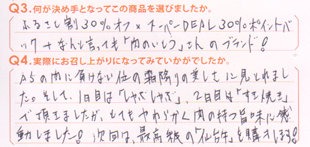 Q3.何が決め手となってこの商品を選びましたか。
ふるさと割30%オフ×スーパーDEAL30%ポイントバ
ック+なんと言っても「肉のいとう」さんのブランド!
Q4.実際にお召し上がりになってみていかがでしたか。
A5の肉に負けない位の霜降りの美しさに見とれまし
た。そして、1日目は「しゃぶしゃぶ」、2日目は「すき焼き」
で頂きましたが、とてもやわらかく肉の持つ旨味に感
動しました!次回は、最高級の「仙台牛」を購入します!